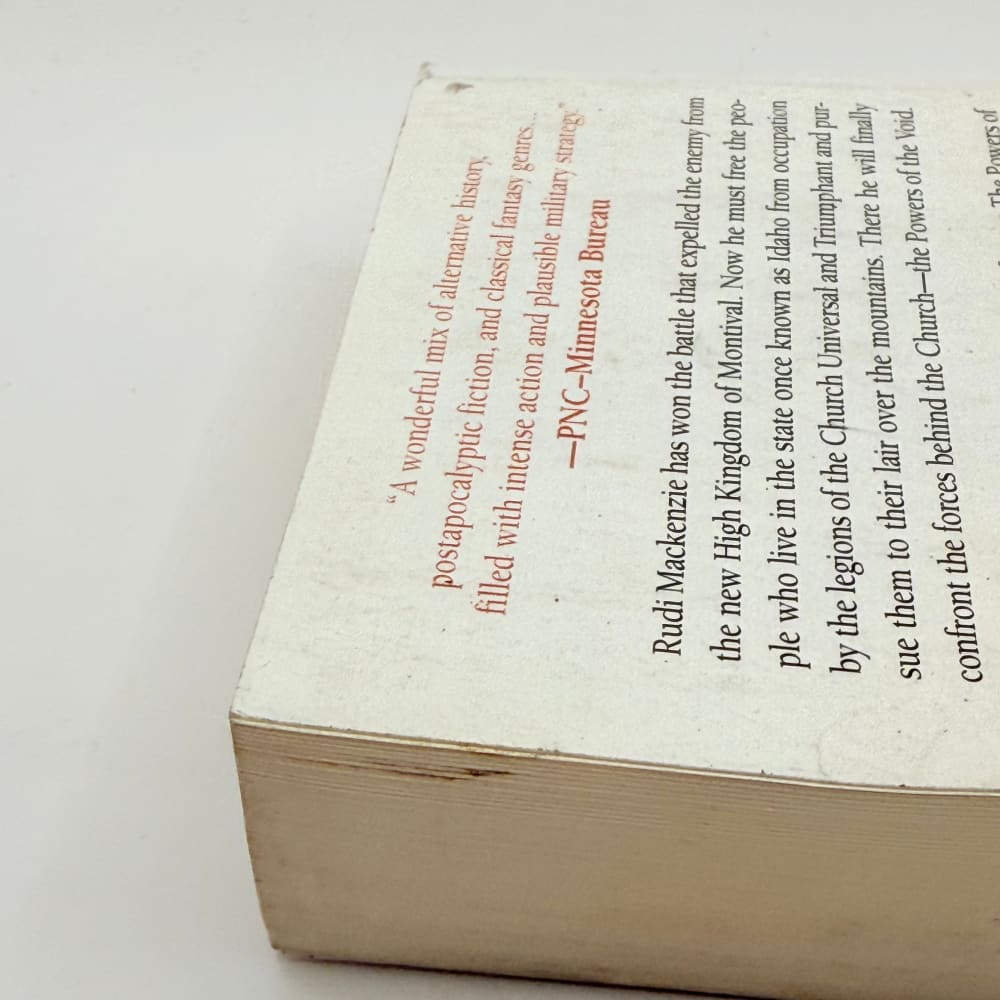 “A wonderful mix of alternative history,
postapocalyptic fiction, and classical fantasy genres...
filled with intense action and plausible military strategy.”
—PNC–Minnesota Bureau
Rudi Mackenzie has won the battle that expelled the enemy from
the new High Kingdom of Montival. Now he must free the peo-
ple who live in the state once known as Idaho from occupation
by the legions of the Church Universal and Triumphant and pur-
sue them to their lair over the mountains. There he will finally
confront the forces behind the Church—the Powers of the Void.
The Powers of